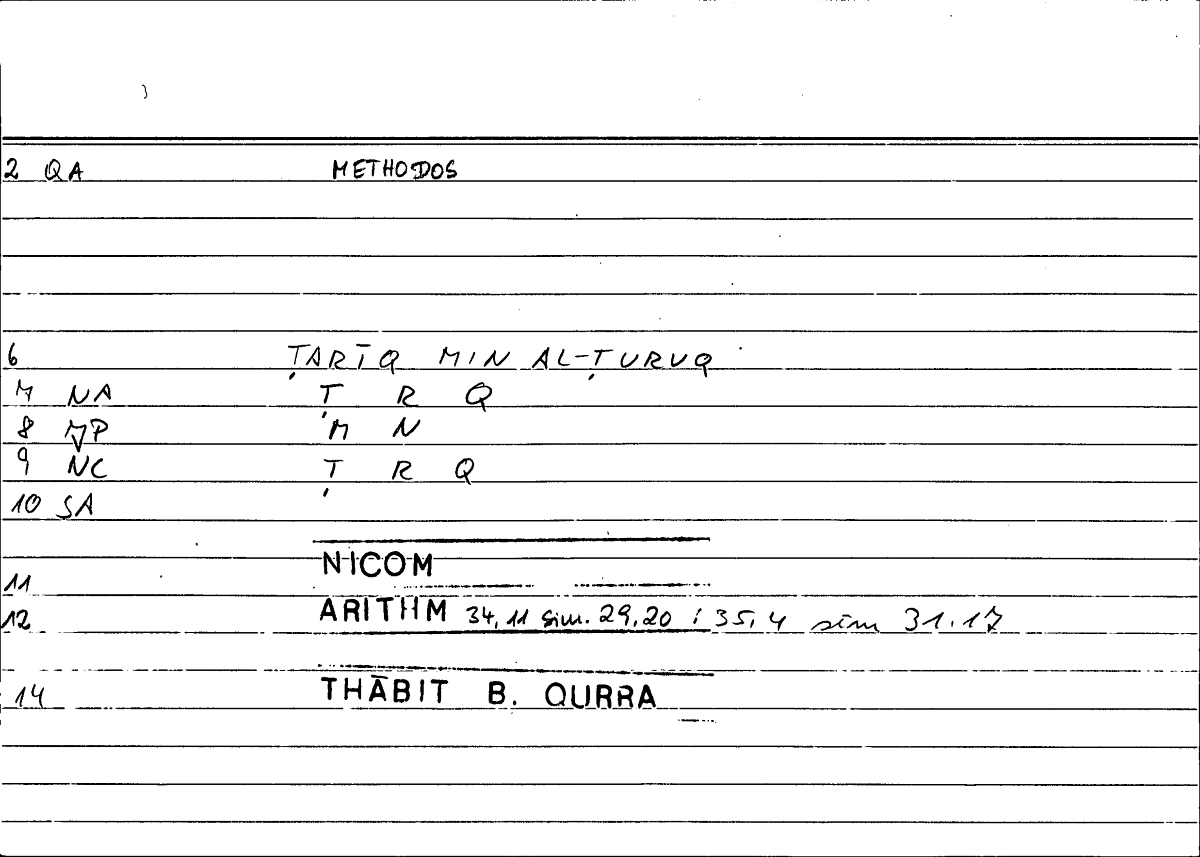 2 QA METHODOS
6 ṬARĪQ MIN AL-ṬURUQ
7 NA Ṭ R Q
8 NP M N
9 NC Ṭ R Q
10 SA
NICOM
11
12 ARITHM 34,11 sim. 29,20 ; 35,4 sim 31.17
14 THĀBIT B. QURRA